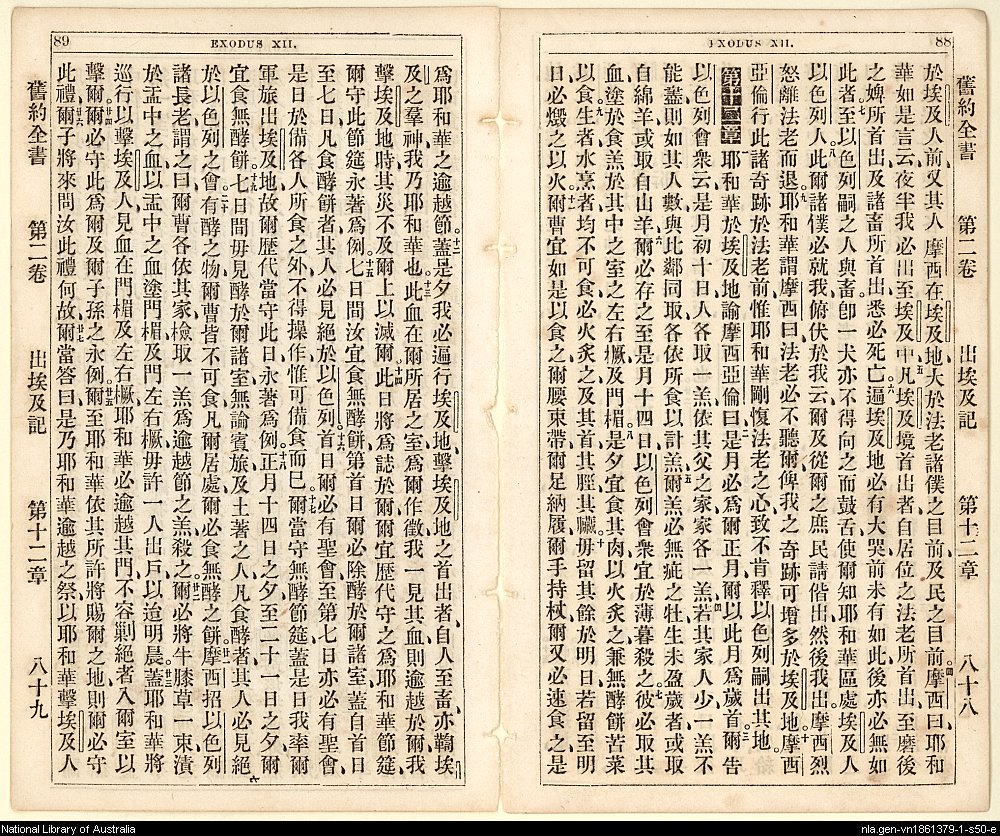 88
EXODUS XII.
舊約全書 第二卷 出埃及記 第十二章 八十八
於埃及人前、又其人摩西在埃及地、大於法老諸僕之目前、及民之目前、摩西曰、耶和
華如是言云、夜半我必出至埃及中、凡埃及境首出者、自居位之法老所首出、至磨後
之婢所首出、及諸畜所首出、悉必死亡、遍埃及地必有大哭、前未有如此、後亦必無如
此者、至以色列嗣之人與畜、卽一犬亦不得向之而鼓舌、使爾知耶和華區處埃及人
以色列人、此爾諸僕必就我、俯伏於我云、爾及從爾之庶民、請偕出、然後我出、摩西烈
怒、離法老而退、耶和華謂摩西曰、法老必不聽爾、俾我之奇跡可增多於埃及地、摩西
亞倫行此諸奇跡於法老前、惟耶和華剛愎法老之心、致不肯釋以色列嗣出其地、
第十二章 耶和華於埃及地諭摩西亞倫曰、是月必爲爾正月、爾以此月爲歲首、爾告
以色列會衆云、是月初十日、人各取一羔、依其父之家、家各一羔、若其家人少、一羔不
能盡、則如其人數、與比鄰同取、各依所食以計羔、爾羔必無疵之牡、生未盈歲者、或取
自綿羊、或取自山羊、爾必存之、至是月十四日、以色列會衆宜於薄暮殺之、彼必取其
血、塗於食羔於其中之室之左右橛、及門楣、是夕宜食其肉、以火炙之、兼無酵餅苦菜
以食、生者、水烹者、均不可食、必火炙之、及其首、其脛、其臟、毋留其餘於明日、若留至明
日、必燬之以火、爾曹宜如是以食之、爾腰束帶、爾足納履、爾手持杖、爾又必速食之、是
89
EXODUS XII.
爲耶和華之逾越節、蓋是夕我必遍行埃及地、擊埃及地之首出者、自人至畜、亦鞫埃
及之羣神、我乃耶和華也、此血在爾所居之室、爲爾作徵、我一見其血、則逾越於爾、我
擊埃及地時、其災不及爾上以滅爾、此日將爲誌於爾、爾宜歷代守之、爲耶和華節筵、
爾守此節筵、永著爲例、七日間汝宜食無酵餅、第首日爾必除酵於爾諸室、蓋自首日
至七日、凡食酵餅者、其人必見絕於以色列、首日爾必有聖會、至第七日亦必有聖會、
是日於備各人所食之外、不得操作、惟可備食而已、爾當守無酵節筵、蓋是日我率爾
軍旅出埃及地、故爾歷代當守此日、永著爲例、正月十四日之夕、至二十一日之夕、爾
宜食無酵餅、七日間毋見酵於爾諸室、無論賓旅、及土著之人、凡食酵者、其人必見絕
於以色列之會、有酵之物、爾曹皆不可食、凡爾居處、爾必食無酵之餅、摩西招以色列
諸長老謂之曰、爾曹各依其家、檢取一羔、爲逾越節之羔殺之、爾必將牛膝草一束、漬
於盂中之血、以盂中之血塗門楣、及門左右橛、毋許一人出戶、以迨明晨、蓋耶和華將
巡行以擊埃及人、見血在門楣及左右橛、耶和華必逾越其門、不容剿絕者入爾室、以
擊爾、爾必守此、爲爾及爾子孫之永例、爾至耶和華依其所許、將賜爾之地、則爾必守
此禮、爾子將來問汝此禮何故、爾當答曰、是乃耶和華逾越之祭、以耶和華擊埃及人
舊約全書 第二卷 出埃及記 第十二章 八十九
National Library of Australia
nla.gen-vn1861379-1-s50-e